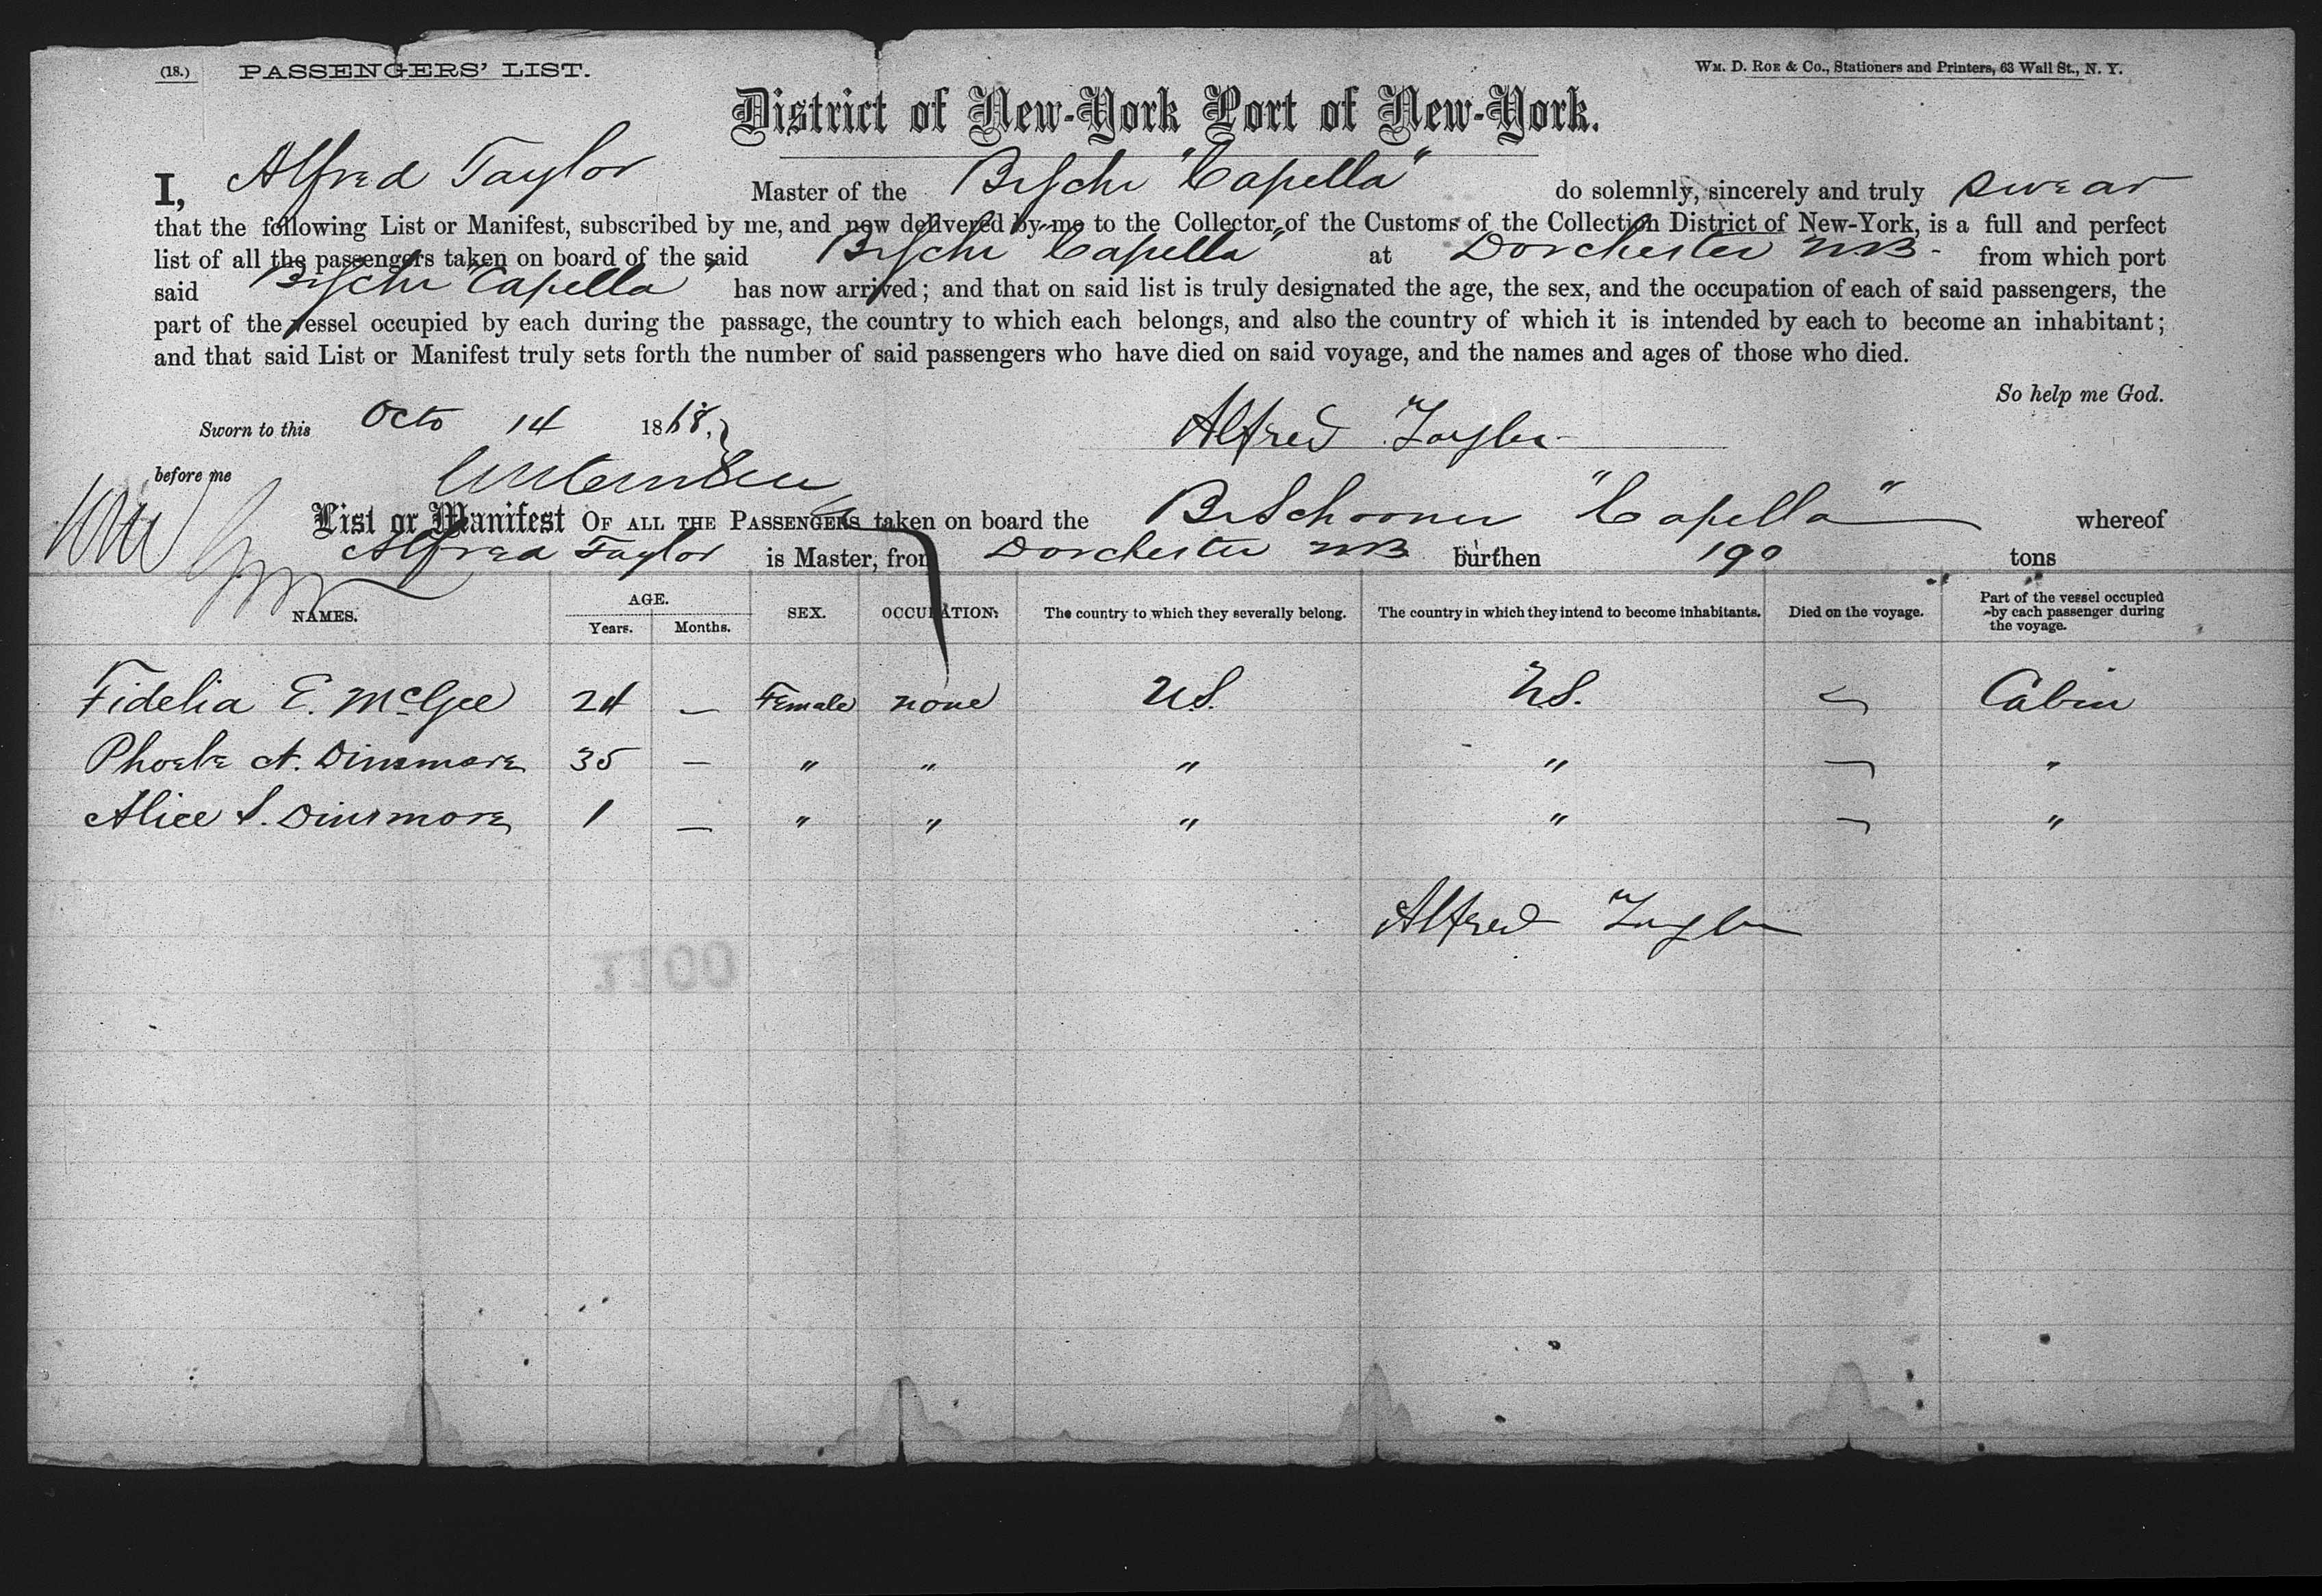 (18.) PASSENGERS' LIST. WM. D. ROE & CO., Stationers and Printers, 63 Wall St., N. Y.
District of New-York Port of New-York.
I, Alfred Taylor Master of the Br Schr "Capella" do solemnly, sincerely and truly swear
that the following List or Manifest, subscribed by me, and now delivered by me to the Collector of the Customs of the Collection District of New-York, is a full and perfect
list of all the passengers taken on board of the said Br Schr "Capella" at Dorchester N.B. from which port
said Br Schr "Capella" has now arrived; and that on said list is truly designated the age, the sex, and the occupation of each of said passengers, the
part of the vessel occupied by each during the passage, the country to which each belongs, and also the country of which it is intended by each to become an inhabitant;
and that said List or Manifest truly sets forth the number of said passengers who have died on said voyage, and the names and ages of those who died.
So help me God.
Sworn to this Octo 14 1868. Alfred Taylor
before me
List or Manifest OF ALL THE PASSENGERS taken on board the Br Schooner "Capella" whereof
Alfred Taylor is Master, from Dorchester NB burthen 190 tons
NAMES. AGE. Years. Months. SEX. OCCUPATION. The country to which they severally belong. The country in which they intend to become inhabitants. Died on the voyage. Part of the vessel occupied by each passenger during the voyage.
Fidelia E. McGee 24 — Female none US. US. — Cabin
Phoebe A. Dinsmore 35 — " " " " — "
Alice S. Dinsmore 1 — " " " " — "
Alfred Taylor
1100